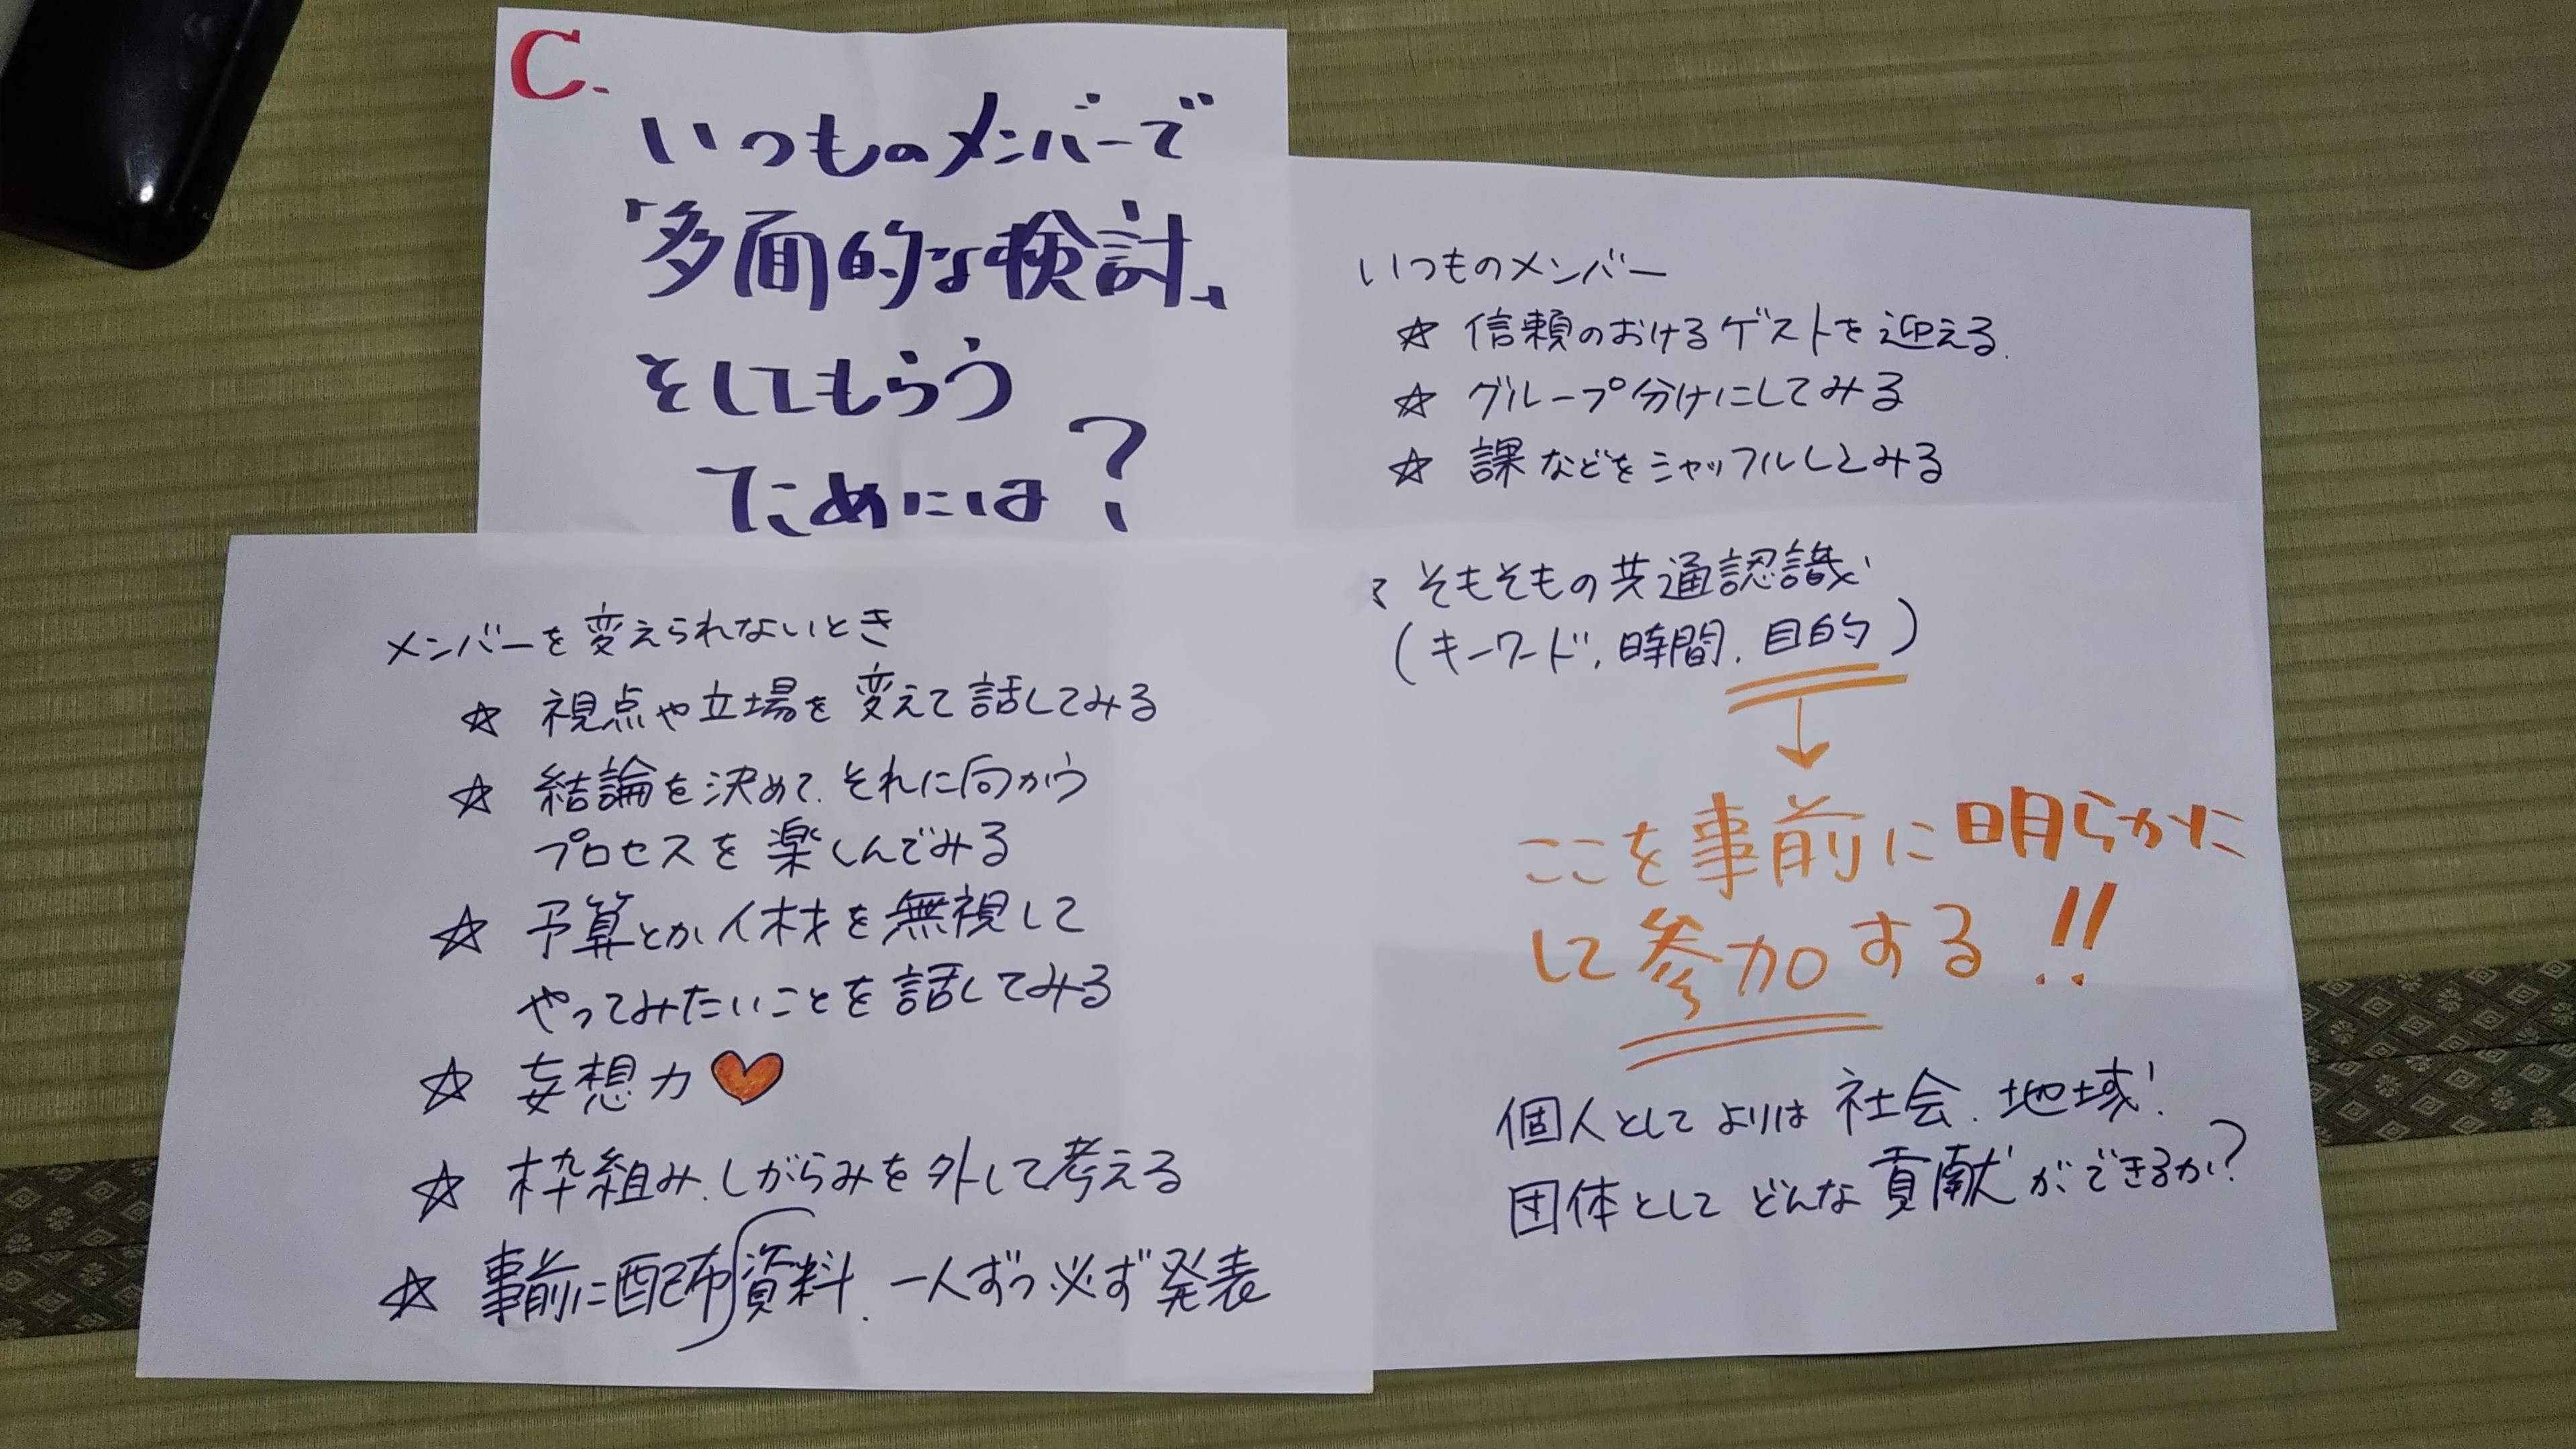 C.
いつものメンバーで
「多面的な検討」
をしてもらう
ためには?
いつものメンバー
☆ 信頼のおけるゲストを迎える.
☆ グループ分けにしてみる
☆ 課などをシャッフルしてみる
☆ そもそもの共通認識
(キーワード、時間、目的)
↓
ここを事前に明らかに
して参加する!!
個人としてよりは社会、地域!
団体としてどんな貢献ができるか?
メンバーを変えられないとき
☆ 視点や立場を変えて話してみる
☆ 結論を決めて、それに向かう
プロセスを楽しんでみる
☆ 予算とか人材を無視して
やってみたいことを話してみる
☆ 妄想力
☆ 枠組み、しがらみを外して考える
☆ 事前に配布資料、一人ずつ必ず発表